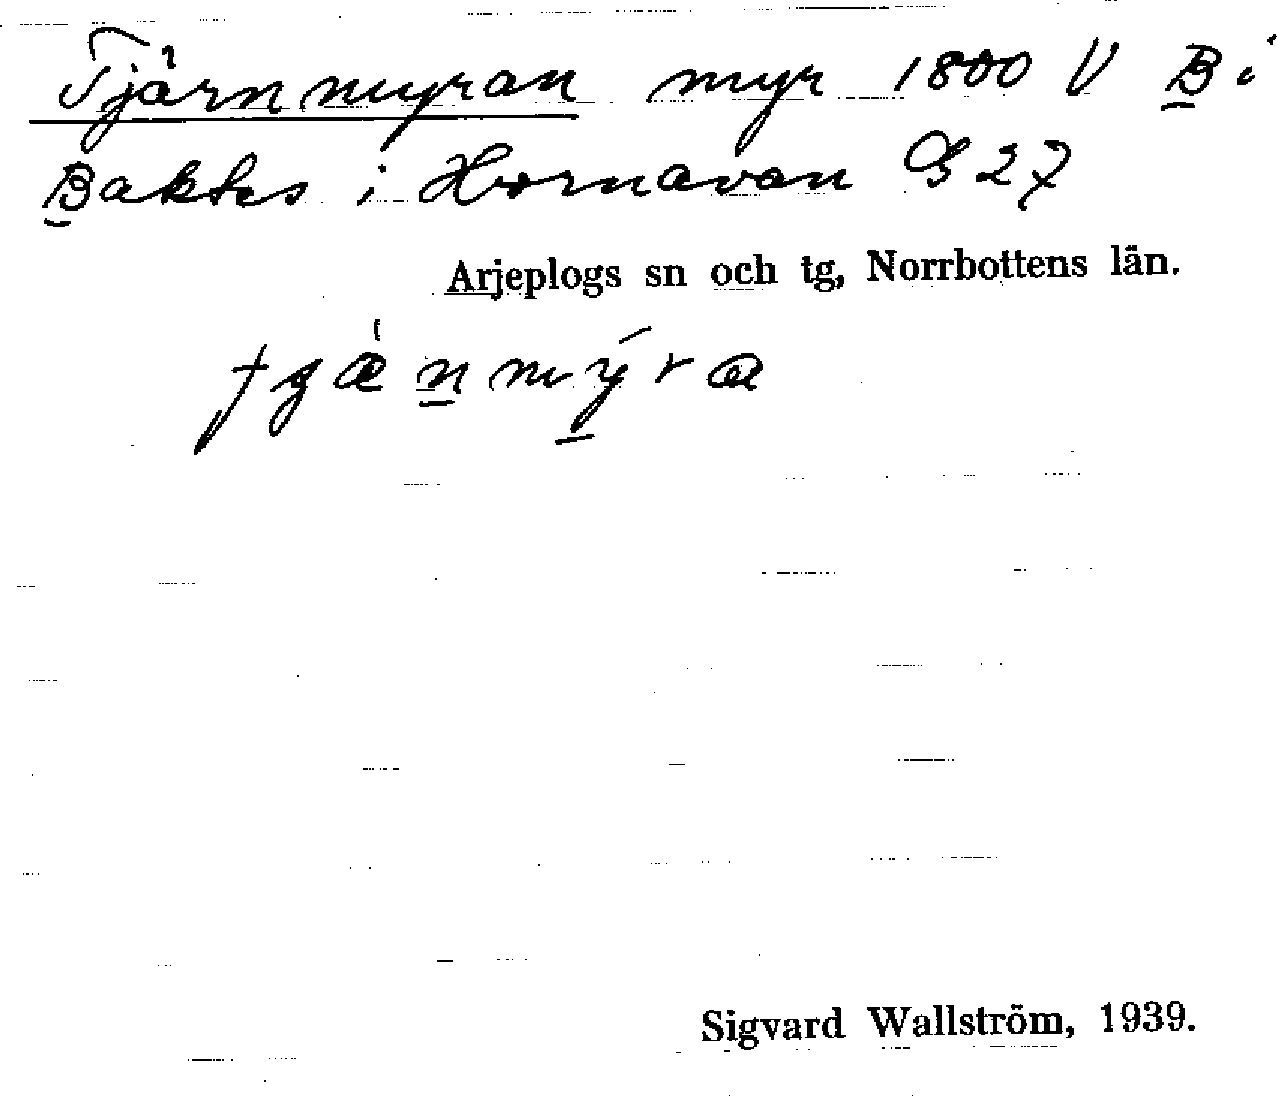 Tjärnmyran myr 1800 V B i
Baktes i Hornavan G 27
Arjeplogs sn och tg, Norrbottens län.
Sigvard Wallström, 1939.